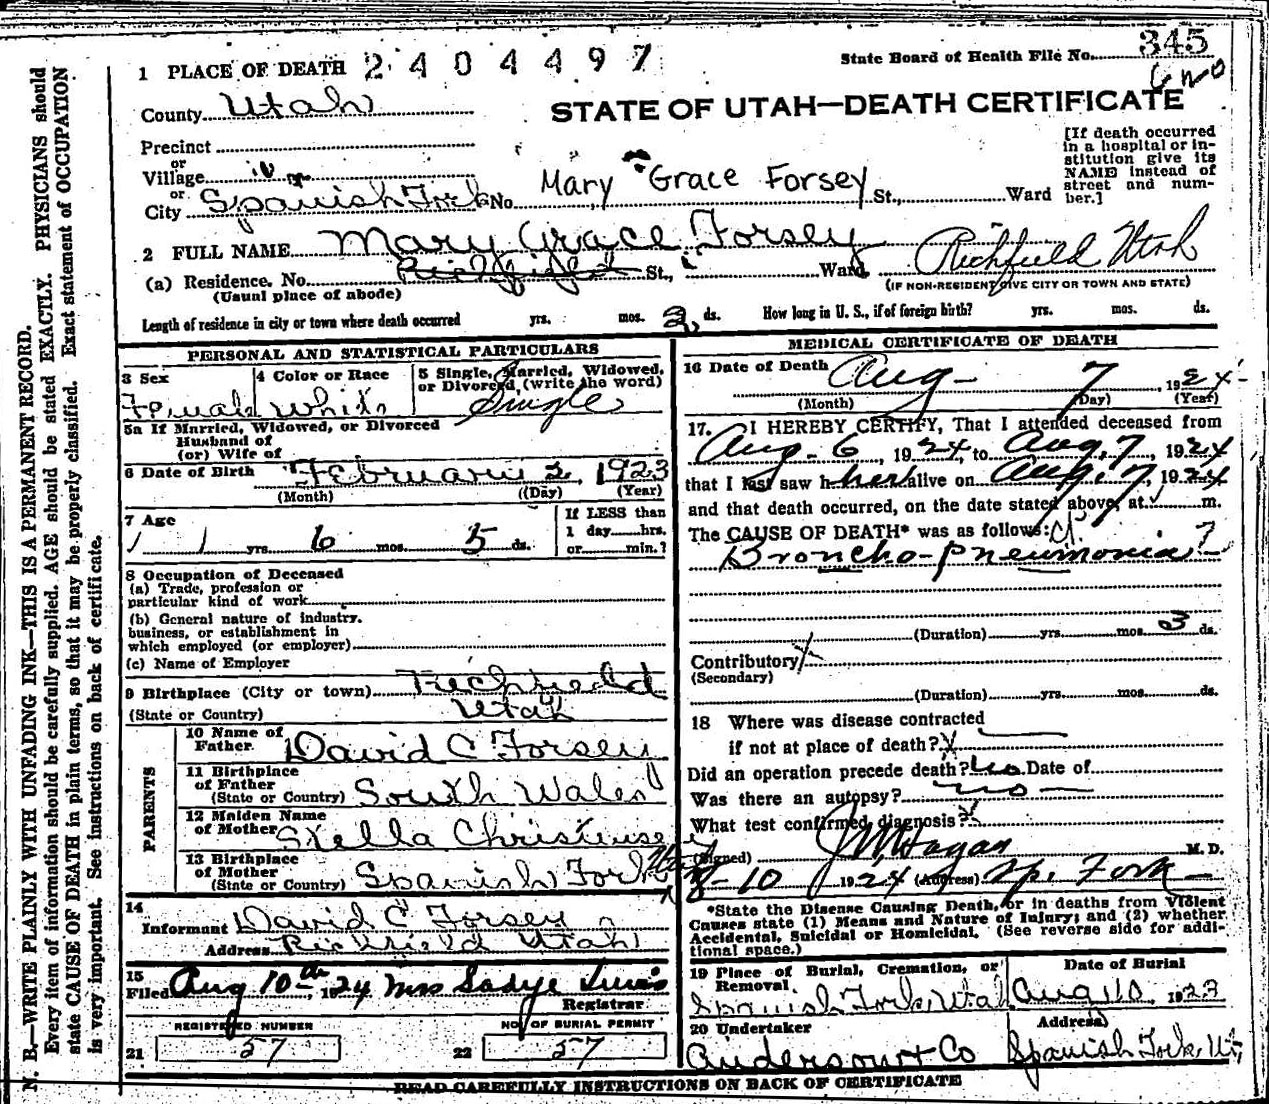 345
State Board of Health File No.
1 PLACE OF DEATH 2404497
6 no
County Utah
STATE OF UTAH—DEATH CERTIFICATE
Precinct
or
Village
or
City Spanish Fork No. Mary Grace Forsey St., Ward
[If death occurred
in a hospital or in-
stitution give its
NAME instead of
street and num-
ber.]
2 FULL NAME Mary Grace Forsey
(a) Residence. No. Richfield St., Ward, Richfield Utah
(Usual place of abode)
(IF NON-RESIDENT GIVE CITY OR TOWN AND STATE)
Length of residence in city or town where death occurred yrs. mos. 2 ds. How long in U. S., if of foreign birth? yrs. mos. ds.
PERSONAL AND STATISTICAL PARTICULARS
3 Sex 4 Color or Race 5 Single, Married, Widowed,
or Divorced, (write the word)
Female White Single
5a If Married, Widowed, or Divorced
Husband of
(or) Wife of
6 Date of Birth February 2 1923
(Month) (Day) (Year)
7 Age If LESS than
1 day hrs.
1 yrs. 6 mos. 5 ds. or min.?
8 Occupation of Deceased
(a) Trade, profession or
particular kind of work
(b) General nature of industry.
business, or establishment in
which employed (or employer)
(c) Name of Employer
9 Birthplace (City or town) Richfield
(State or Country) Utah
PARENTS
10 Name of
Father David C Forsey
11 Birthplace
of Father
(State or Country) South Wales
12 Maiden Name
of Mother Stella Christense
13 Birthplace
of Mother
(State or Country) Spanish Fork
14
Informant David C Forsey
Address Richfield Utah
15
Filed Aug 10th, 1924 Mrs Sadye Lewis
Registrar
REGISTERED NUMBER NO. OF BURIAL PERMIT
21 57 22 57
MEDICAL CERTIFICATE OF DEATH
16 Date of Death Aug 7, 1924
(Month) (Day) (Year)
17. I HEREBY CERTIFY, That I attended deceased from
Aug 6, 1924, to Aug 7, 1924
that I last saw h her alive on Aug 7, 1924
and that death occurred, on the date stated above, at m.
The CAUSE OF DEATH* was as follows:
Broncho-pneumonia ?
(Duration) yrs. mos. 3 ds.
Contributory
(Secondary)
(Duration) yrs. mos. ds.
18 Where was disease contracted
if not at place of death?
Did an operation precede death? No Date of
Was there an autopsy? no
What test confirmed diagnosis?
(Signed) J M Hagan M. D.
8-10 1924 (Address) Sp. Fork
*State the Disease Causing Death, or in deaths from Violent
Causes state (1) Means and Nature of Injury; and (2) whether
Accidental, Suicidal or Homicidal. (See reverse side for addi-
tional space.)
19 Place of Burial, Cremation, or Date of Burial
Removal
Spanish Fork, Utah Aug 10 1923
20 Undertaker Address
& Co Spanish Fork, Ut.
READ CAREFULLY INSTRUCTIONS ON BACK OF CERTIFICATE
N. B.—WRITE PLAINLY WITH UNFADING INK—THIS IS A PERMANENT RECORD.
Every item of information should be carefully supplied. AGE should be stated EXACTLY. PHYSICIANS should
state CAUSE OF DEATH in plain terms, so that it may be properly classified. Exact statement of OCCUPATION
is very important. See instructions on back of certificate.